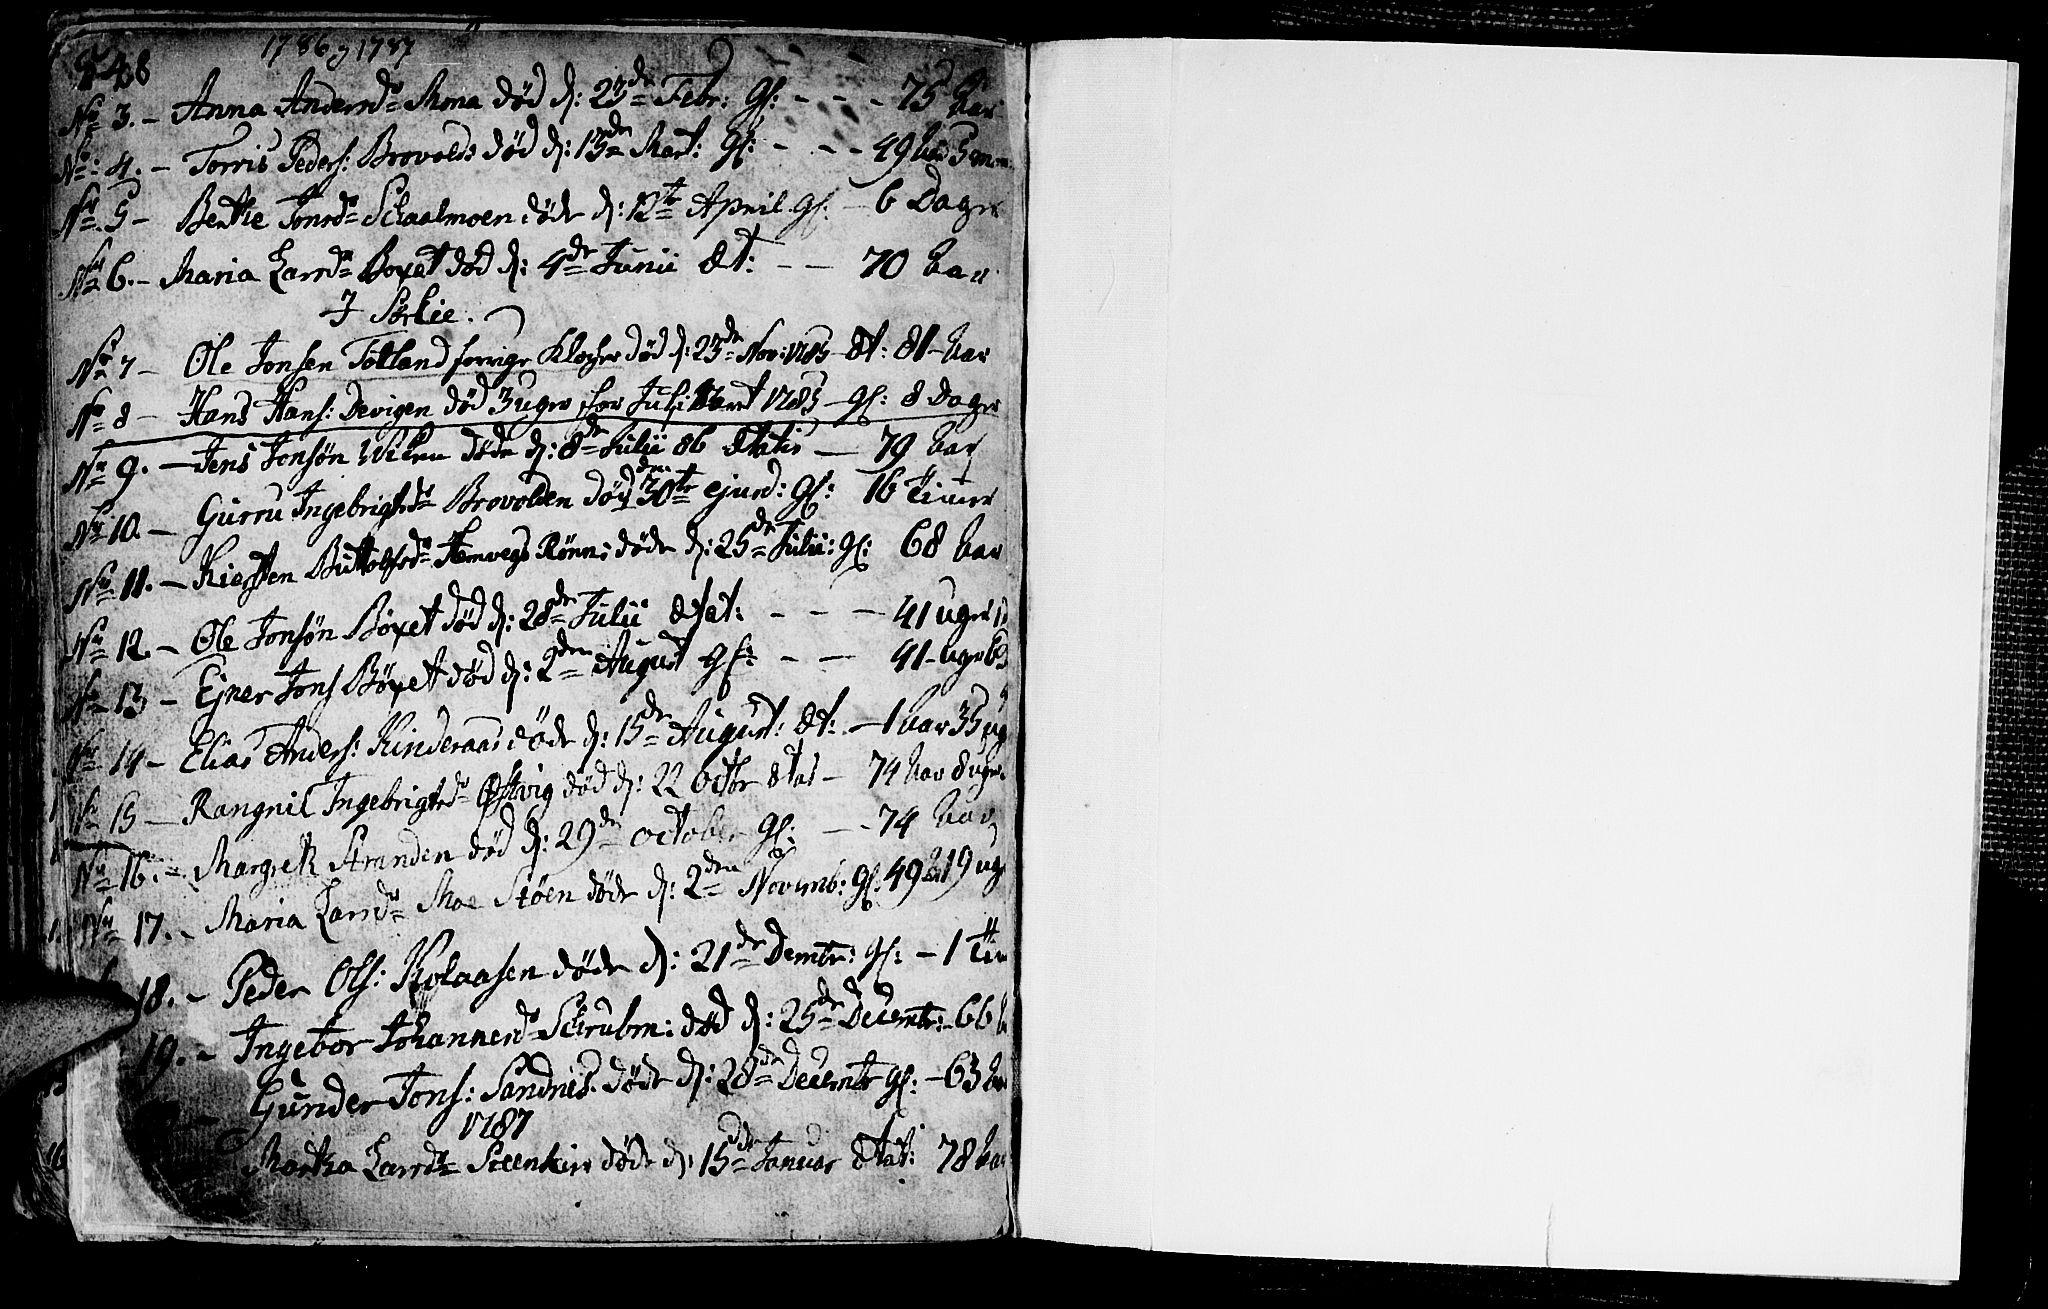 1786 g 1787
No 3. - Anna Andersd: Moma død d: 23de Febr: gl: - - - 75 Aar
No: 4. - Torris Peders: Brovold død d: 15de Mart: gl: - - - 49 Aar 5 m
No 5 - Berthe Jonsd: Schaalmoen døde d: 12te April gl: - 6 Dage
No 6. - Maria Larsd: Boxet død d: 4de Junii æt: - - 70 Aar
I Sørlie.
No 7 - Ole Jonsen Totland forrige Klocker død d: 23de Nov: 1785 - æt: 81 - Aar
No 8 - Hans Hans: Devigen død 3 uger for Jul 1785 - gl: 8 Dage
No 9. - Jens Jonsøn Wiken døde d: 8de Julii 86 ætatis - 79 Aar
No 10. - Gurru Ingebrigtsd: Brovolden død den 30te ejusd: gl: 16 Timer
No 11. - Kiersten Buttolfsd: Hemvegs Rønn: døde d: 25de Julii: gl: 68 Aar
No 12. - Ole Jonsøn Böxet død d: 28de Julii ætat: - - - 41 uger 1
No 13 - Ejner Jons Böxet død d: 2den August gl: - - 41 - uge 6
No 14 - Elias Anders: Kinderaas døde d: 15de August: æt: - 1 Aar 35 ug
No 15 - Rangnil Ingebrigtsd: Østvig død d: 22 Octbr ætat - 74 Aar 8 uge
No 16. - Margrete Stranden død d: 29de October gl: - - 74 Aar
No 17. - Maria Larsd: Moe Støen døde d: 2den Novemb: gl: 49 Aar 19 ug
18. - Peder Ols: Kolaasen døde d: 21de Demtr: gl: - 1 Tim
19. - Ingebor Johannesd: Schrubm: død d: 25de Decemtr: - 66
- Gunder Jons: Sandnes døde d: 28de Decemtr gl: - 63 Aar
1787
Martha Larsd: Steenkier døde d: 15de Januar ætat: 78 Aar